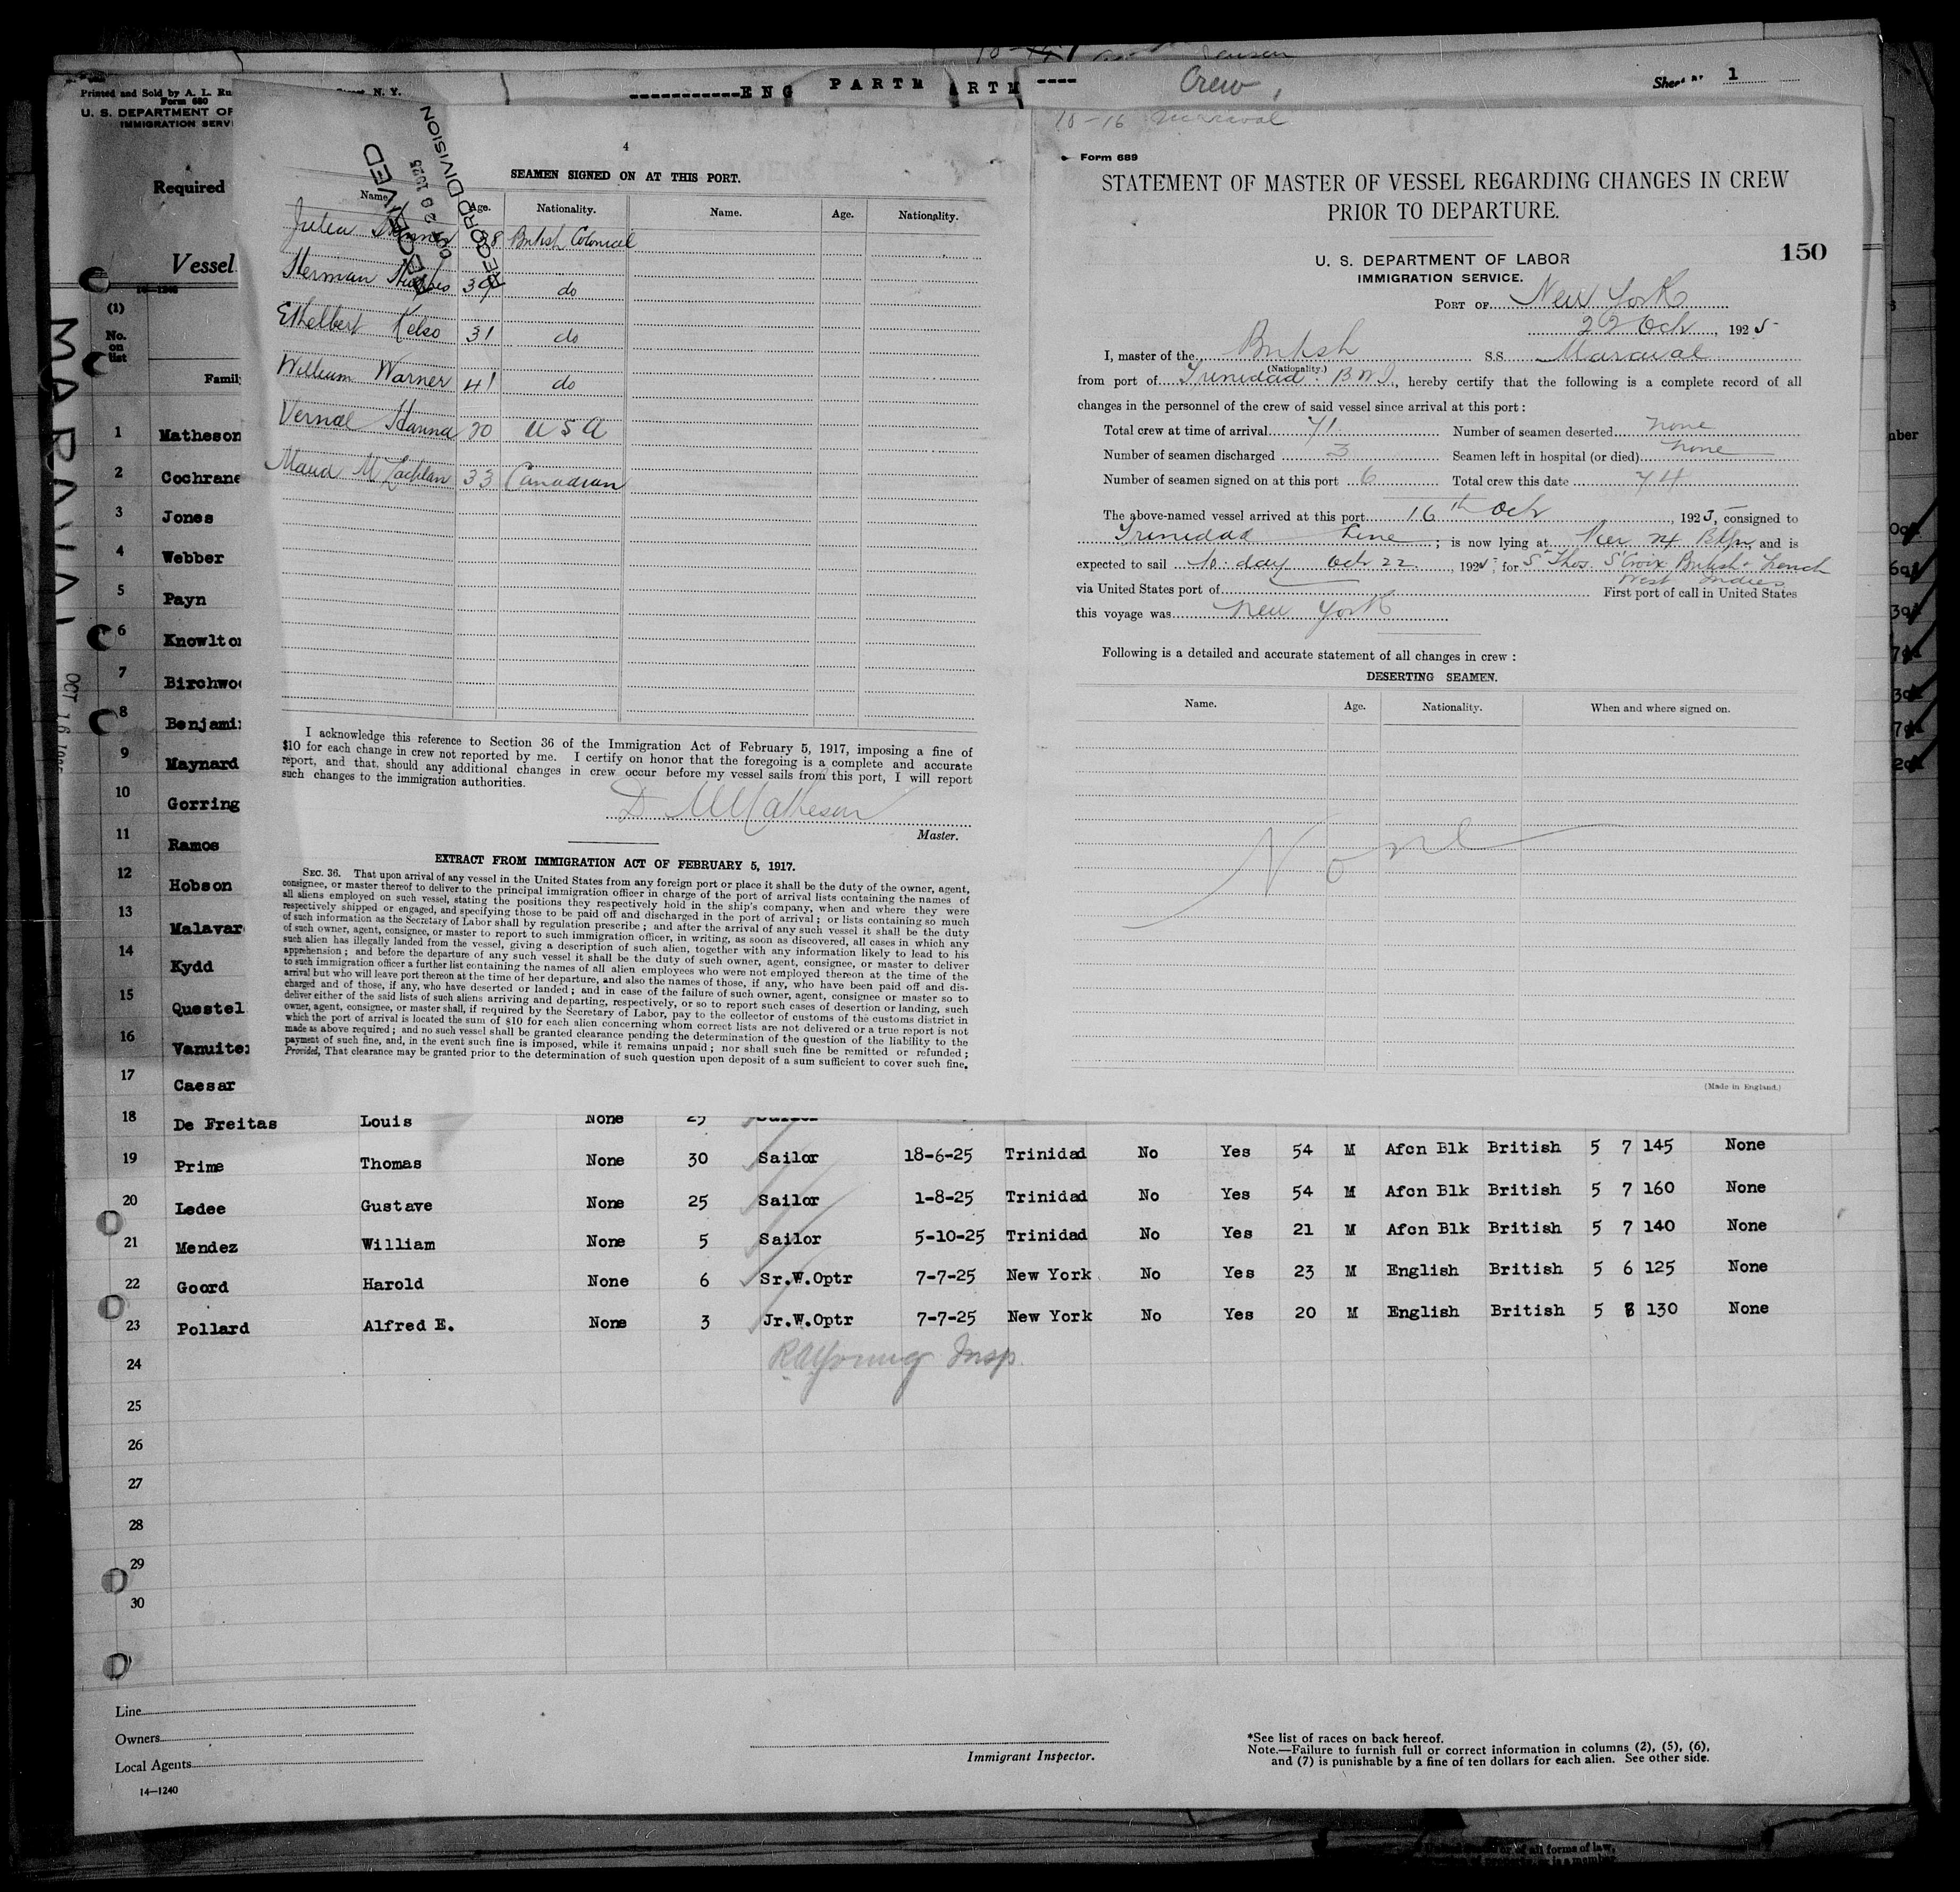 Crew
Sheet Nº 1
Printed and Sold by A. L. Ru
N. Y.
Form 680
U. S. DEPARTMENT OF
IMMIGRATION SERVI
ENG PARTM ARTM
Required
Vessel
(1)
No.
on
list
Famil
MARAVAL
OCT 16
RECEIVED
RECORD DIVISION
4
SEAMEN SIGNED ON AT THIS PORT.
Name. Age. Nationality. Name. Age. Nationality.
Julia 38 British Colonial
Herman 39 do
Ethelbert Kelso 31 do
William Warner 41 do
Vernal Hanna 20 U S A
Maud McLachlan 33 Canadian
I acknowledge this reference to Section 36 of the Immigration Act of February 5, 1917, imposing a fine of
$10 for each change in crew not reported by me. I certify on honor that the foregoing is a complete and accurate
report, and that, should any additional changes in crew occur before my vessel sails from this port, I will report
such changes to the immigration authorities.
D Matheson
Master.
EXTRACT FROM IMMIGRATION ACT OF FEBRUARY 5, 1917.
SEC. 36. That upon arrival of any vessel in the United States from any foreign port or place it shall be the duty of the owner, agent,
consignee, or master thereof to deliver to the principal immigration officer in charge of the port of arrival lists containing the names of
all aliens employed on such vessel, stating the positions they respectively hold in the ship's company, when and where they were
respectively shipped or engaged, and specifying those to be paid off and discharged in the port of arrival; or lists containing so much
of such information as the Secretary of Labor shall by regulation prescribe; and after the arrival of any such vessel it shall be the duty
of such owner, agent, consignee, or master to report to such immigration officer, in writing, as soon as discovered, all cases in which any
such alien has illegally landed from the vessel, giving a description of such alien, together with any information likely to lead to his
apprehension; and before the departure of any such vessel it shall be the duty of such owner, agent, consignee, or master to deliver
to such immigration officer a further list containing the names of all alien employees who were not employed thereon at the time of the
arrival but who will leave port thereon at the time of her departure, and also the names of those, if any, who have been paid off and dis-
charged and of those, if any, who have deserted or landed; and in case of the failure of such owner, agent, consignee or master so to
deliver either of the said lists of such aliens arriving and departing, respectively, or so to report such cases of desertion or landing, such
owner, agent, consignee, or master shall, if required by the Secretary of Labor, pay to the collector of customs of the customs district in
which the port of arrival is located the sum of $10 for each alien concerning whom correct lists are not delivered or a true report is not
made as above required; and no such vessel shall be granted clearance pending the determination of the question of the liability to the
payment of such fine, and, in the event such fine is imposed, while it remains unpaid; nor shall such fine be remitted or refunded;
Provided, That clearance may be granted prior to the determination of such question upon deposit of a sum sufficient to cover such fine.
10-16 Maraval
Form 689
STATEMENT OF MASTER OF VESSEL REGARDING CHANGES IN CREW
PRIOR TO DEPARTURE.
150
U. S. DEPARTMENT OF LABOR
IMMIGRATION SERVICE.
PORT OF New York
22 Oct, 1925
I, master of the British S.S. Maraval
(Nationality.)
from port of Trinidad. B W I, hereby certify that the following is a complete record of all
changes in the personnel of the crew of said vessel since arrival at this port:
Total crew at time of arrival 71 Number of seamen deserted none
Number of seamen discharged 3 Seamen left in hospital (or died) none
Number of seamen signed on at this port 6 Total crew this date 74
The above-named vessel arrived at this port 16th Oct, 1925, consigned to
Trinidad Line; is now lying at Pier 24 Bklyn, and is
expected to sail to-day Oct 22, 1925, for St Thos. St Croix British & French
West Indies
via United States port of First port of call in United States
this voyage was New York
Following is a detailed and accurate statement of all changes in crew:
DESERTING SEAMEN.
Name. Age. Nationality. When and where signed on.
None
(Made in England.)
1 Matheson
2 Cochrane
3 Jones
4 Webber
5 Payn
6 Knowlto
7 Birchwo
8 Benjami
9 Maynard
10 Gorring
11 Ramos
12 Hobson
13 Malavar
14 Kydd
15 Questel
16 Vanuite
17 Caesar
18 De Freitas Louis None 25 Sailor
19 Prime Thomas None 30 Sailor 18-6-25 Trinidad No Yes 54 M Afcn Blk British 5 7 145 None
20 Ledee Gustave None 25 Sailor 1-8-25 Trinidad No Yes 54 M Afcn Blk British 5 7 160 None
21 Mendez William None 5 Sailor 5-10-25 Trinidad No Yes 21 M Afcn Blk British 5 7 140 None
22 Goord Harold None 6 Sr.W.Optr 7-7-25 New York No Yes 23 M English British 5 6 125 None
23 Pollard Alfred E. None 3 Jr.W.Optr 7-7-25 New York No Yes 20 M English British 5 8 130 None
24 RAYoung Insp.
25
26
27
28
29
30
Line
Owners
Local Agents
14—1240
Immigrant Inspector.
*See list of races on back hereof.
Note.—Failure to furnish full or correct information in columns (2), (5), (6),
and (7) is punishable by a fine of ten dollars for each alien. See other side.